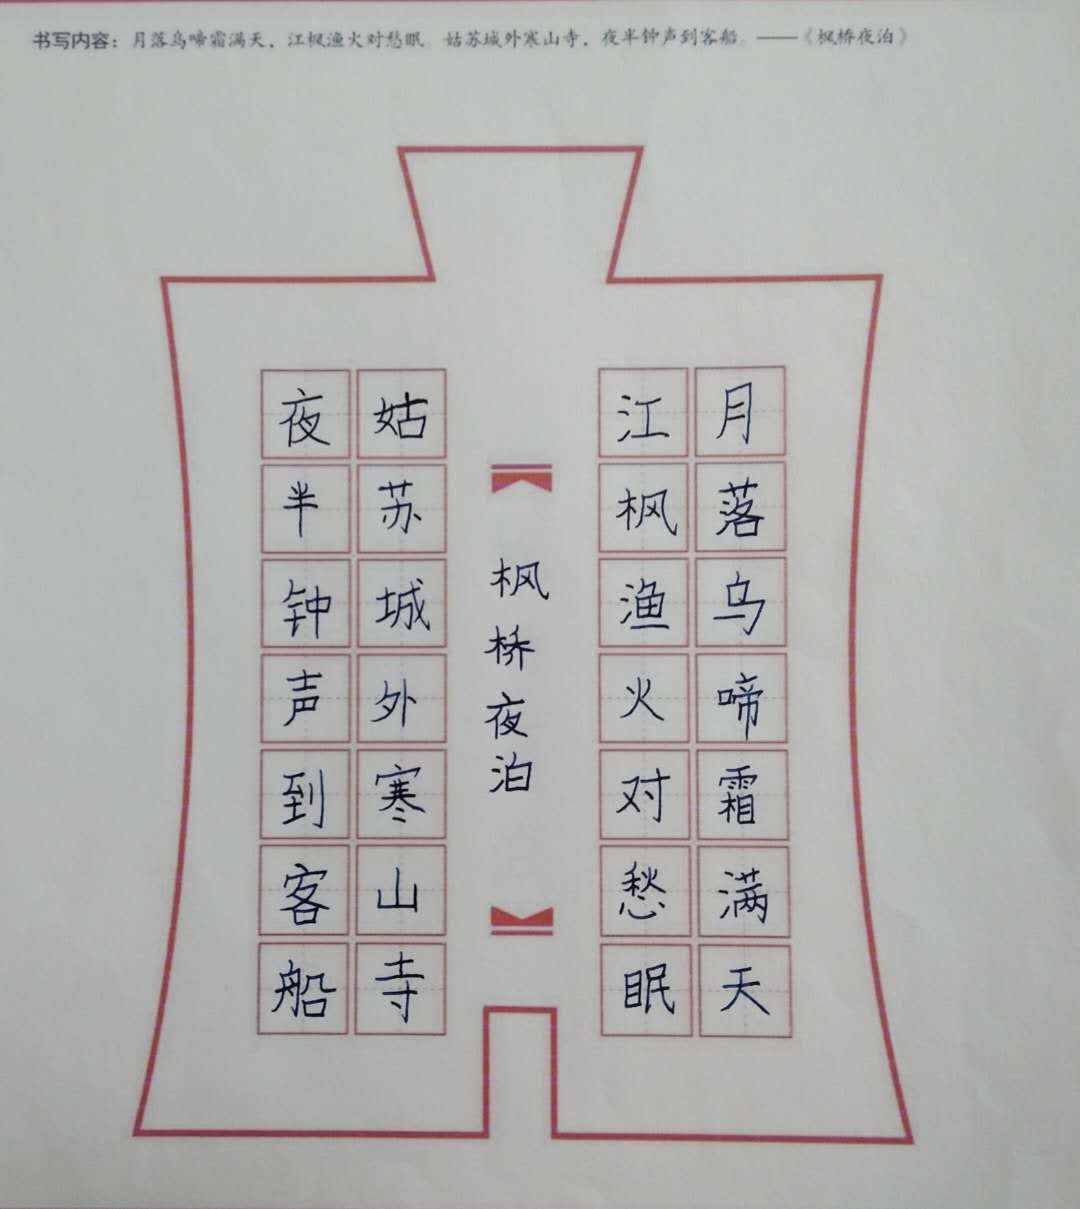 书写内容：月落乌啼霜满天，江枫渔火对愁眠。姑苏城外寒山寺，夜半钟声到客船。——《枫桥夜泊》
月落乌啼霜满天
江枫渔火对愁眠
枫桥夜泊
姑苏城外寒山寺
夜半钟声到客船